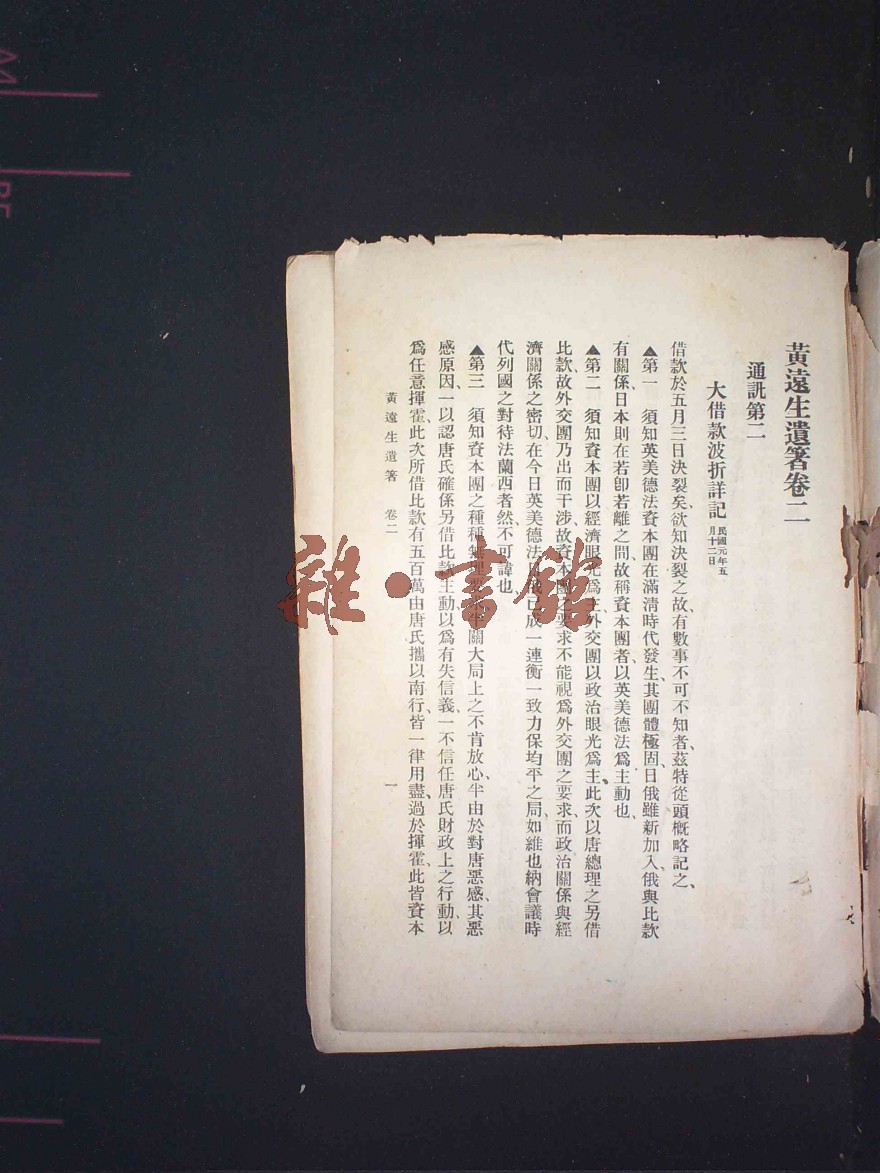 黃遠生遺箸卷二
通訊第二
大借款波折詳記 民國元年五月十二日
借款於五月三日決裂矣、欲知決裂之故、有數事不可不知者、茲特從頭概略記之、
▲第一　須知英美德法資本團在滿淸時代發生、其團體極固、日俄雖新加入、俄與比款
有關係、日本則在若卽若離之間、故稱資本團者、以英美德法爲主動也、
▲第二　須知資本團以經濟眼光爲主、外交團以政治眼光爲主、此次以唐總理之另借
比款、故外交團乃出而干涉、故資本團之要求不能視爲外交團之要求、而政治關係與經
濟關係之密切、在今日英美德法日俄已成一連衡一致力保均平之局、如維也納會議時
代列國之對待法蘭西者然、不可諱也、
▲第三　須知資本團之種種無理要求、半關大局上之不肯放心、半由於對唐惡感、其惡
感原因、一以認唐氏確係另借比款主動、以爲有失信義、一不信任唐氏財政上之行動、以
爲任意揮霍、此次所借比款有五百萬由唐氏攜以南行、皆一律用盡、過於揮霍、此皆資本
黃遠生遺箸　卷二　一
雜·書館